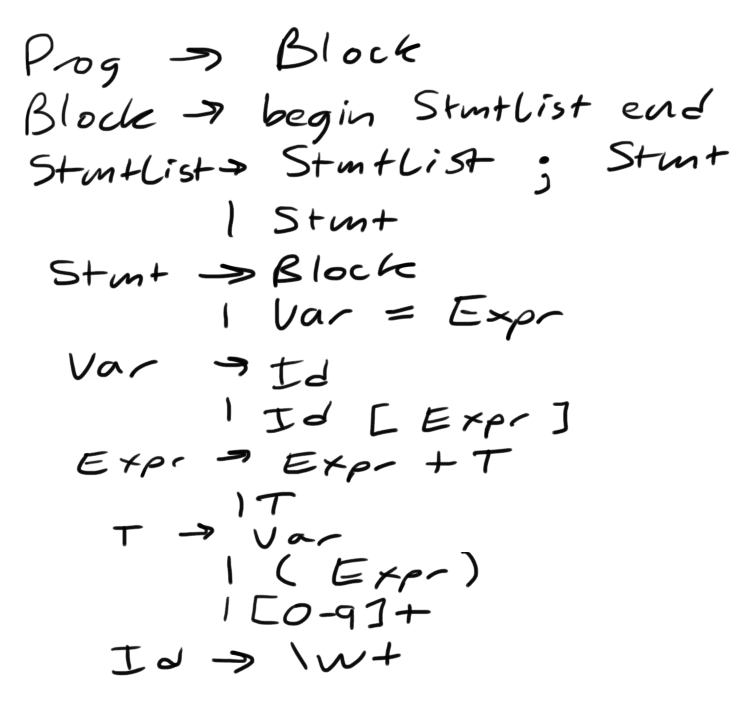 Prog → Block
Block → begin StmtList end
StmtList → StmtList ; Stmt
| Stmt
Stmt → Block
| Var = Expr
Var → Id
| Id [ Expr ]
Expr → Expr + T
| T
T → Var
| ( Expr )
| [0-9]+
Id → \w+